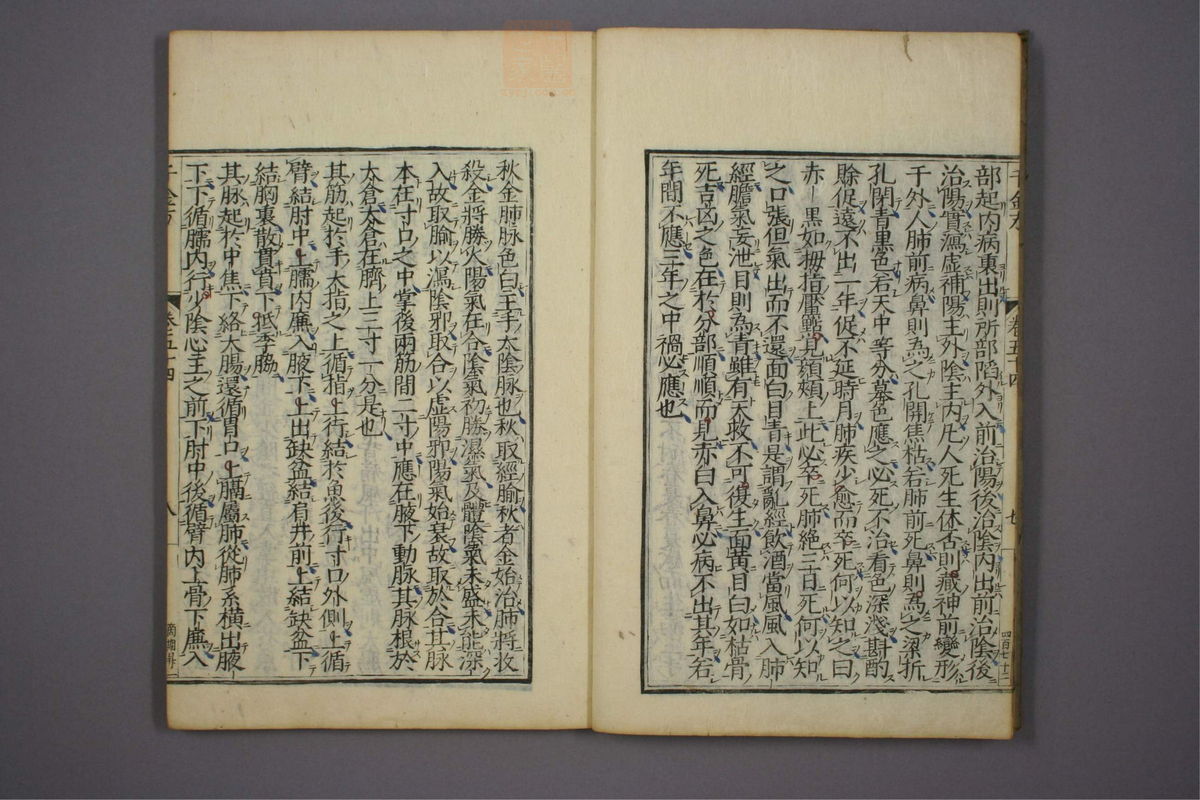 部起内病裏出則所部陷外入前治陽後治陰内出前治陰後
治陽實瀉虛補陽主外陰主内凡人死生休否則藏神前變形
于外人肺前病鼻則為之孔開焦枯若肺前死鼻則為之梁折
孔閉青黒色若天中等分墓色應之必死不治看色深淺斟酌
賖促遠不出一年促不延時月肺疾少愈而卒死何以知之曰
赤黒如拇指黶點見顏頰上此必卒死肺絶三日死何以知
之口張但氣出而不還面白目青是謂亂經飲酒當風風入肺
經膽氣妄泄目則為青雖有天救不可復生面黄目白如枯骨
死吉凶之色在於分部順順而見赤白入鼻必病不出其年若
年間不應三年之中禍必應也
千金方
卷五十四
七
四百七十二
秋金肺脉色白主手太陰脉也秋取經腧秋者金始治肺將收
殺金將勝火陽氣在合陰氣初勝濕氣及體陰氣未盛未能深
入故取腧以瀉陰邪取合以虛陽邪陽氣始衰故取於合其脉
本在寸口之中掌後兩筋間二寸中應在腋下動脉其脉根於
太倉太倉在臍上三寸一分是也
其筋起於手大指之上循指上行結於魚後行寸口外側上循
臂結肘中上臑内廉入腋下上出缺盆結肩井前上結缺盆下
結胸裏散貫賁下抵季脇
其脉起於中焦下絡大腸還循胃口上膈屬肺從肺系横出腋
下下循臑内行少陰心主之前下肘中後循臂内上骨下廉入
千金方
卷五十四
八